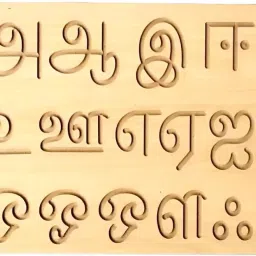 அ ஆ இ ஈ
உ ஊ எ ஏ ஐ
ஒ ஓ ஔ ஃ